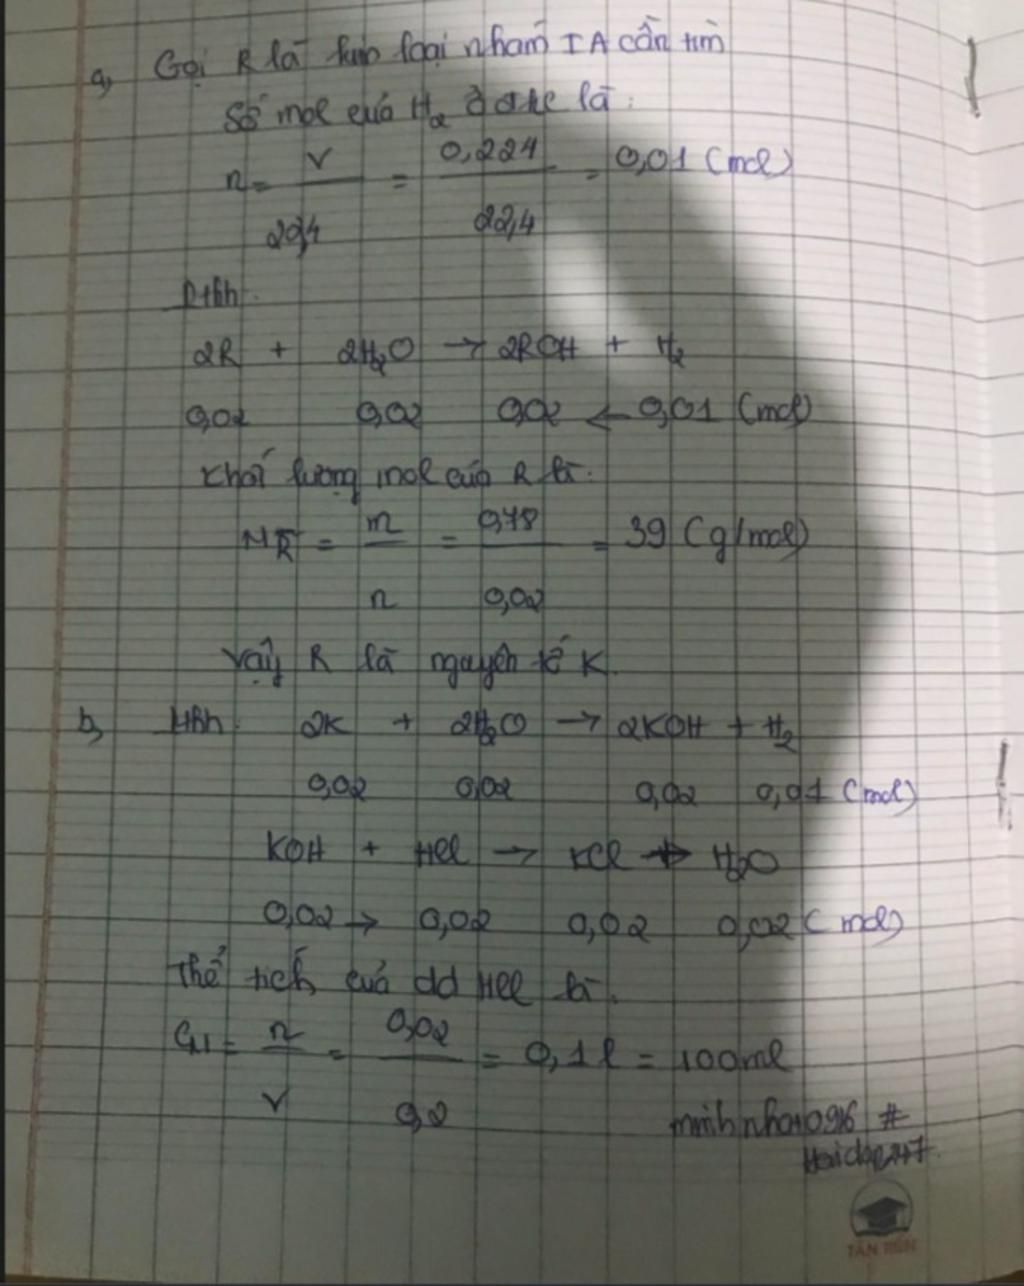 a, Gọi R là kim loại nhóm IA cần tìm
Số mol của H₂ ở đktc là:
n = V/22,4 = 0,224/22,4 = 0,01 (mol)
Pthh:
2R + 2H₂O → 2ROH + H₂
0,02 0,02 0,02 ← 0,01 (mol)
Khối lượng mol của R là:
M_R = m/n = 0,78/0,02 = 39 (g/mol)
Vậy R là nguyên tố K.
b, 2K + 2H₂O → 2KOH + H₂
0,02 0,02 0,02 0,01 (mol)
KOH + HCl → KCl + H₂O
0,02 → 0,02 0,02 0,02 (mol)
Thể tích của dd HCl là:
= n/V = 0,02/0,2 = 0,1 l = 100ml
#
TÂN TIẾN